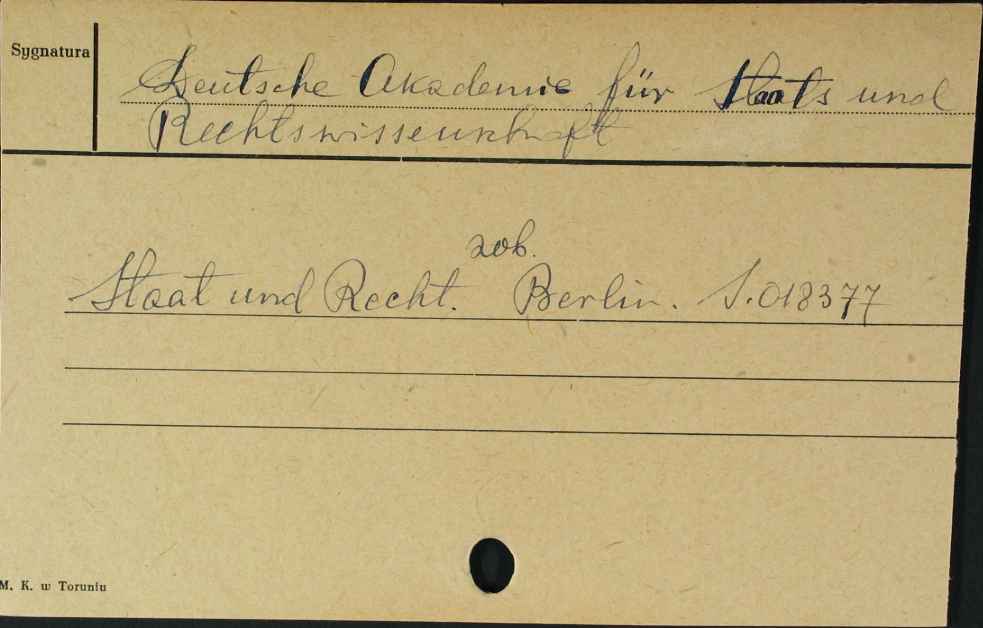 Sygnatura
Deutsche Akademie für Staats und
Rechtswissenschaft
zob.
Staat und Recht. Berlin. S.018377
M. K. w Toruniu